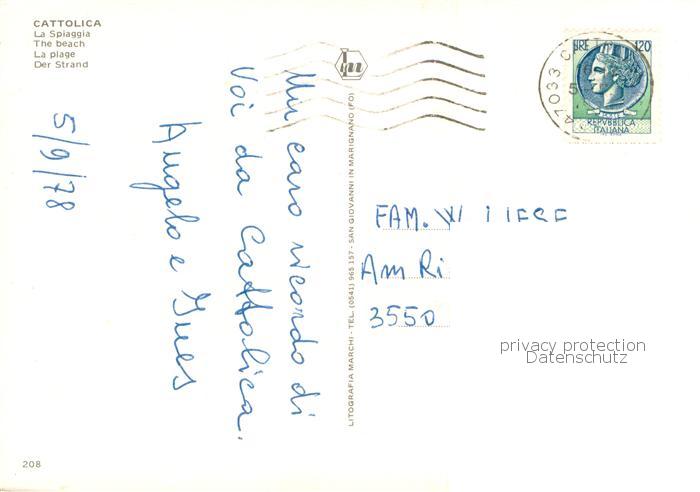 CATTOLICA
La Spiaggia
The beach
La plage
Der Strand
5/9/78
Un caro ricordo di
Voi da Cattolica.
Angelo e Ines
LITOGRAFIA MARCHI - TEL. (0541) 965 157 - SAN GIOVANNI IN MARIGNANO (FO)
LIRE 120
REPVBBLICA
ITALIANA
47033
FAM.
Am Ri
3550
privacy protection
Datenschutz
208